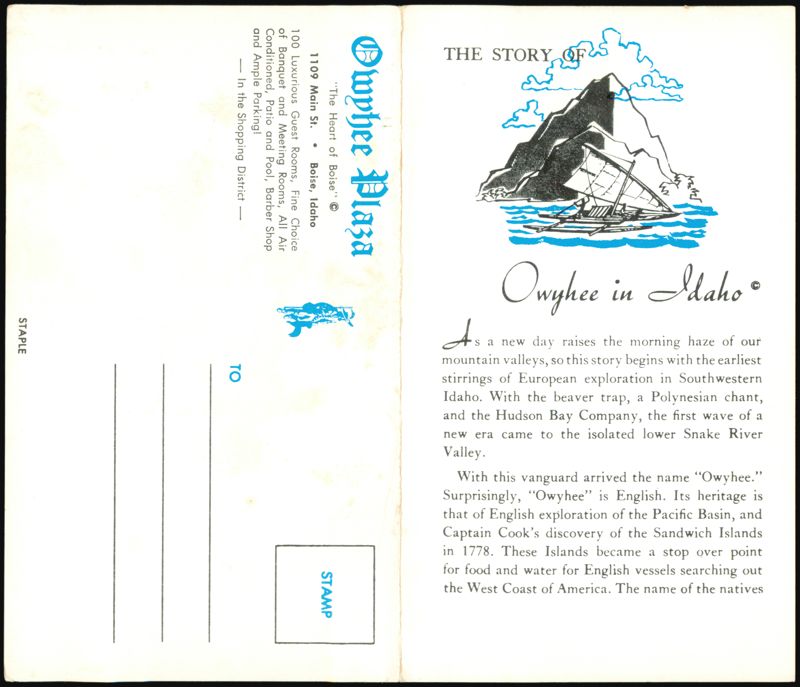 Owyhee Plaza
"The Heart of Boise" ©
1109 Main St. • Boise, Idaho
100 Luxurious Guest Rooms, Fine Choice
of Banquet and Meeting Rooms, All Air
Conditioned, Patio and Pool, Barber Shop
and Ample Parking!
— In the Shopping District —
TO
STAMP
STAPLE
THE STORY OF
Owyhee in Idaho ©
As a new day raises the morning haze of our
mountain valleys, so this story begins with the earliest
stirrings of European exploration in Southwestern
Idaho. With the beaver trap, a Polynesian chant,
and the Hudson Bay Company, the first wave of a
new era came to the isolated lower Snake River
Valley.
With this vanguard arrived the name "Owyhee."
Surprisingly, "Owyhee" is English. Its heritage is
that of English exploration of the Pacific Basin, and
Captain Cook's discovery of the Sandwich Islands
in 1778. These Islands became a stop over point
for food and water for English vessels searching out
the West Coast of America. The name of the natives